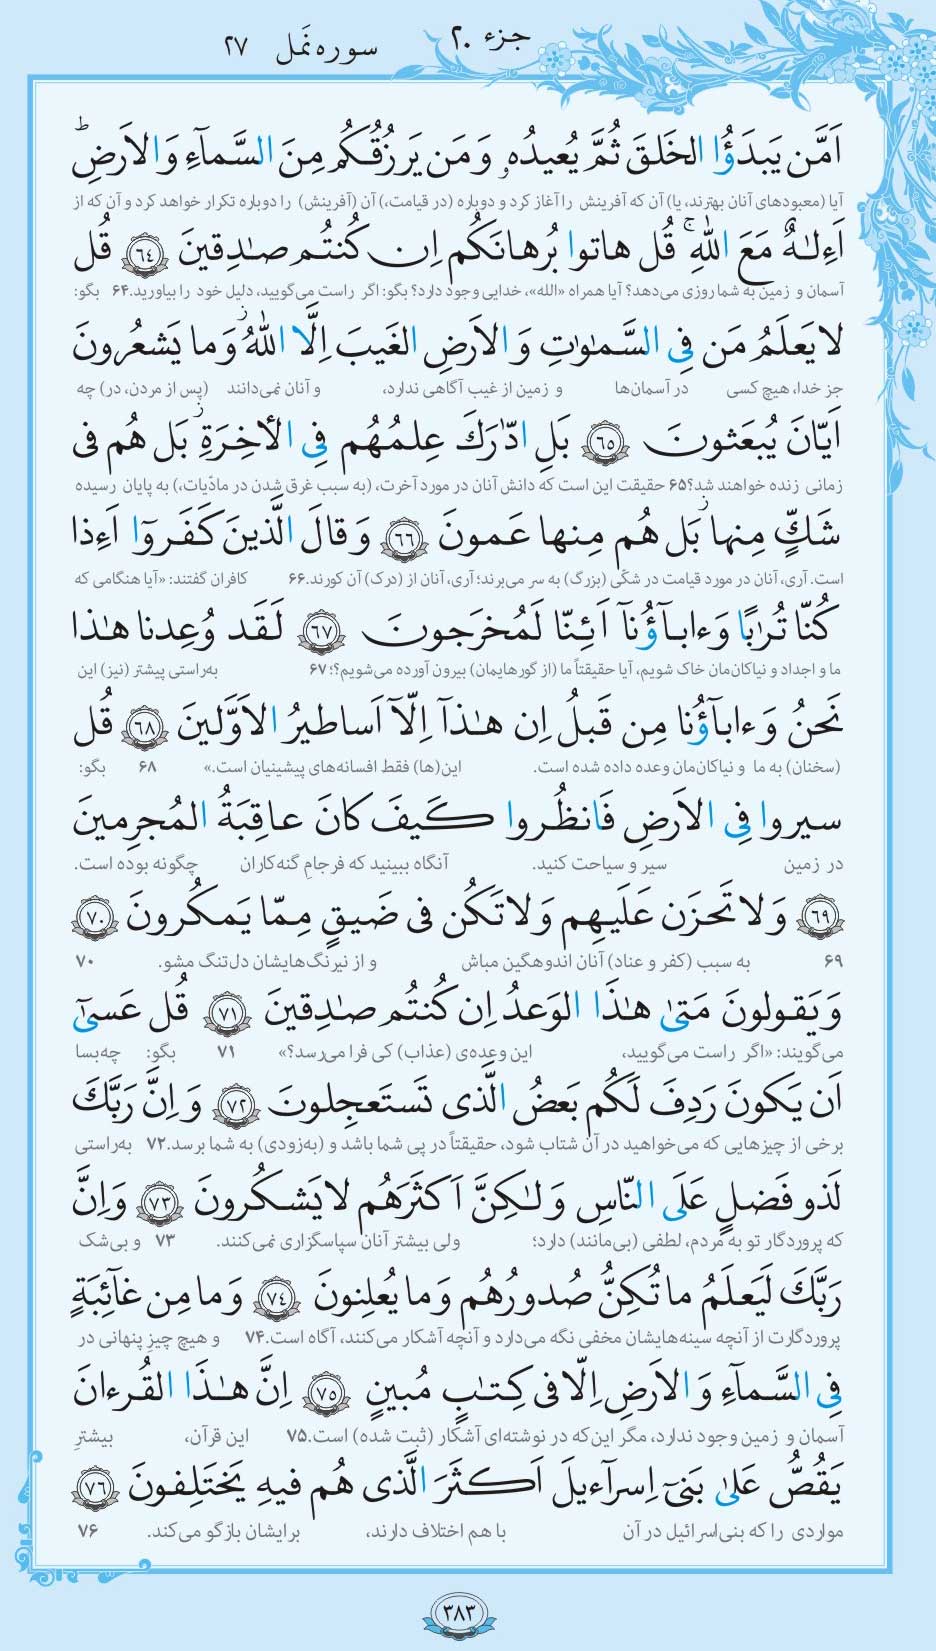 جزء ۲۰ سوره نَمل ۲۷
اَمَّن يَبدَؤُا الخَلقَ ثُمَّ يُعيدُهو وَ مَن يَرزُقُكُم مِنَ السَّماءِ وَ الاَرضِ ط
آیا (معبودهای آنان بهترند، یا) آن که آفرینش را آغاز کرد و دوباره (در قیامت،) آن (آفرینش) را دوباره تکرار خواهد کرد و آن که از
اَءِلـٰهٌ مَعَ اللهِ ج قُل هاتوا بُرهانَكُم اِن كُنتُم صـٰدِقينَ ﴿٦٤﴾ قُل
آسمان و زمین به شما روزی می‌دهد؟ آیا همراه «الله»، خدایی وجود دارد؟ بگو: اگر راست می‌گویید، دلیل خود را بیاورید.۶۴ بگو:
لا يَعلَمُ مَن فِى السَّمـٰوٰتِ وَ الاَرضِ الغَيبَ اِلَّا اللهُ ز وَ ما يَشعُرونَ
جز خدا، هیچ کسی در آسمان‌ها و زمین از غیب آگاهی ندارد، و آنان نمی‌دانند (پس از مردن، در) چه
اَيّانَ يُبعَثونَ ﴿٦٥﴾ بَلِ ادّٰرَكَ عِلمُهُم فِى الـٔاخِرَةِ ز بَل هُم فى
زمانی زنده خواهند شد؟۶۵ حقیقت این است که دانش آنان در مورد آخرت، (به سبب غرق شدن در مادّیات،) به پایان رسیده
شَكٍّ مِنها ز بَل هُم مِنها عَمونَ ﴿٦٦﴾ وَ قالَ الَّذينَ كَفَروٓا اَءِذا
است. آری، آنان در مورد قیامت در شکّی (بزرگ) به سر می‌برند؛ آری، آنان از (درک) آن کورند.۶۶ کافران گفتند: «آیا هنگامی که
كُنّا تُرٰبًا وَ ءابآؤُنآ اَئِنّا لَمُخرَجونَ ﴿٦٧﴾ لَقَد وُعِدنا هـٰذا
ما و اجداد و نیاکان‌مان خاک شویم، آیا حقیقتاً ما (از گورهایمان) بیرون آورده می‌شویم؟؛۶۷ به‌راستی پیشتر (نیز) این
نَحنُ وَ ءابآؤُنا مِن قَبلُ اِن هـٰذآ اِلّآ اَساطيرُ الاَوَّلينَ ﴿٦٨﴾ قُل
(سخنان) به ما و نیاکان‌مان وعده داده شده است. این(ها) فقط افسانه‌های پیشینیان است.» ۶۸ بگو:
سيروا فِى الاَرضِ فَانظُروا كَيفَ كانَ عاقِبَةُ المُجرِمينَ
در زمین سیر و سیاحت کنید. آنگاه ببینید که فرجامِ گنه‌کاران چگونه بوده است.
﴿٦٩﴾ وَ لا تَحزَن عَلَيهِم وَ لا تَكُن فى ضَيقٍ مِمّا يَمكُرونَ ﴿٧٠﴾
۶۹ به سبب (کفر و عناد) آنان اندوهگین مباش و از نیرنگ‌هایشان دل‌تنگ مشو. ۷۰
وَ يَقولونَ مَتىٰ هـٰذَا الوَعدُ اِن كُنتُم صـٰدِقينَ ﴿٧١﴾ قُل عَسىٓ
می‌گویند: «اگر راست می‌گویید، این وعده‌ی (عذاب) کی فرا می‌رسد؟» ۷۱ بگو: چه‌بسا
اَن يَكونَ رَدِفَ لَكُم بَعضُ الَّذى تَستَعجِلونَ ﴿٧٢﴾ وَ اِنَّ رَبَّكَ
برخی از چیزهایی که می‌خواهید در آن شتاب شود، حقیقتاً در پی شما باشد و (به‌زودی) به شما برسد.۷۲ به‌راستی
لَذو فَضلٍ عَلَى النّاسِ وَ لـٰكِنَّ اَكثَرَهُم لا يَشكُرونَ ﴿٧٣﴾ وَ اِنَّ
که پروردگار تو به مردم، لطفی (بی‌مانند) دارد؛ ولی بیشتر آنان سپاسگزاری نمی‌کنند. ۷۳ و بی‌شک
رَبَّكَ لَيَعلَمُ ما تُكِنُّ صُدورُهُم وَ ما يُعلِنونَ ﴿٧٤﴾ وَ ما مِن غآئِبَةٍ
پروردگارت از آنچه سینه‌هایشان مخفی نگه می‌دارد و آنچه آشکار می‌کنند، آگاه است.۷۴ و هیچ چیز پنهانی در
فِى السَّمآءِ وَ الاَرضِ اِلّا فى كِتـٰبٍ مُبينٍ ﴿٧٥﴾ اِنَّ هـٰذَا القُرءانَ
آسمان و زمین وجود ندارد، مگر این‌که در نوشته‌ای آشکار (ثبت شده) است.۷۵ این قرآن، بیشترِ
يَقُصُّ عَلىٰ بَنىٓ اِسرآءيلَ اَكثَرَ الَّذى هُم فيهِ يَختَلِفونَ ﴿٧٦﴾
مواردی را که بنی‌اسرائیل در آن با هم اختلاف دارند، برایشان بازگو می‌کند. ۷۶
۳۸۳